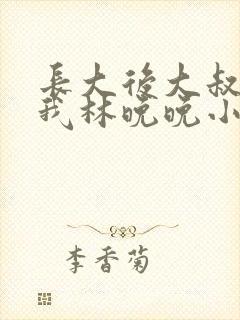 長大後大叔
我林晚晚小
李香菊